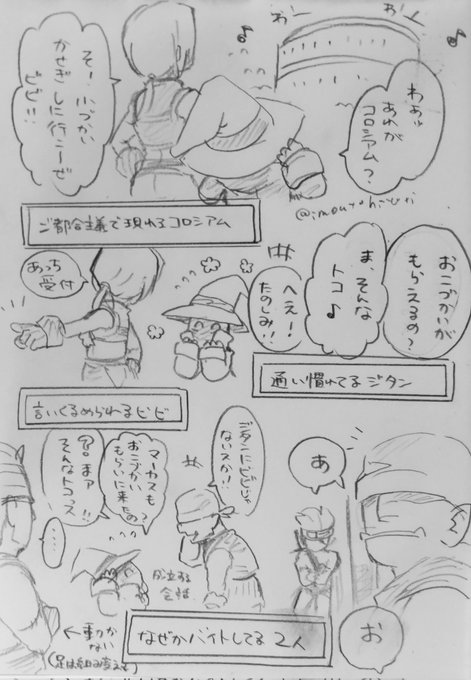 わー
わー
わぁッ
あれが
コロシアム?
そー、小づかい
かせぎしに行こーぜ
ビビ!!
@imoutohiyori
ご都合主義で現れるコロシアム
おこづかいが
もらえるの?
ま、そんな
トコ♪
へえー!
たのしみ!!
あっち
受付
通い慣れてるジタン
言いくるめられるビビ
あ
お
ジタンにビビじゃ
ないスか!!
マーカスも
おこづかい
もらいに来たの?
??まァ
そんなトコっス
!!
・・・
成立する
会話
なぜかバイトしてる2人
←動かない
(足は組み替える)